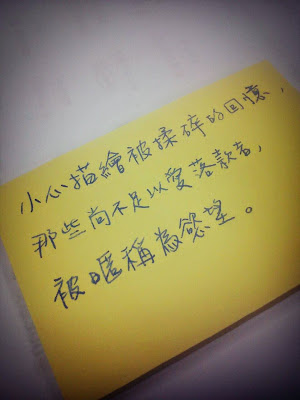 小心描繪被揉碎的回憶，
那些尚不足以愛落款者，
被暱稱為慾望。